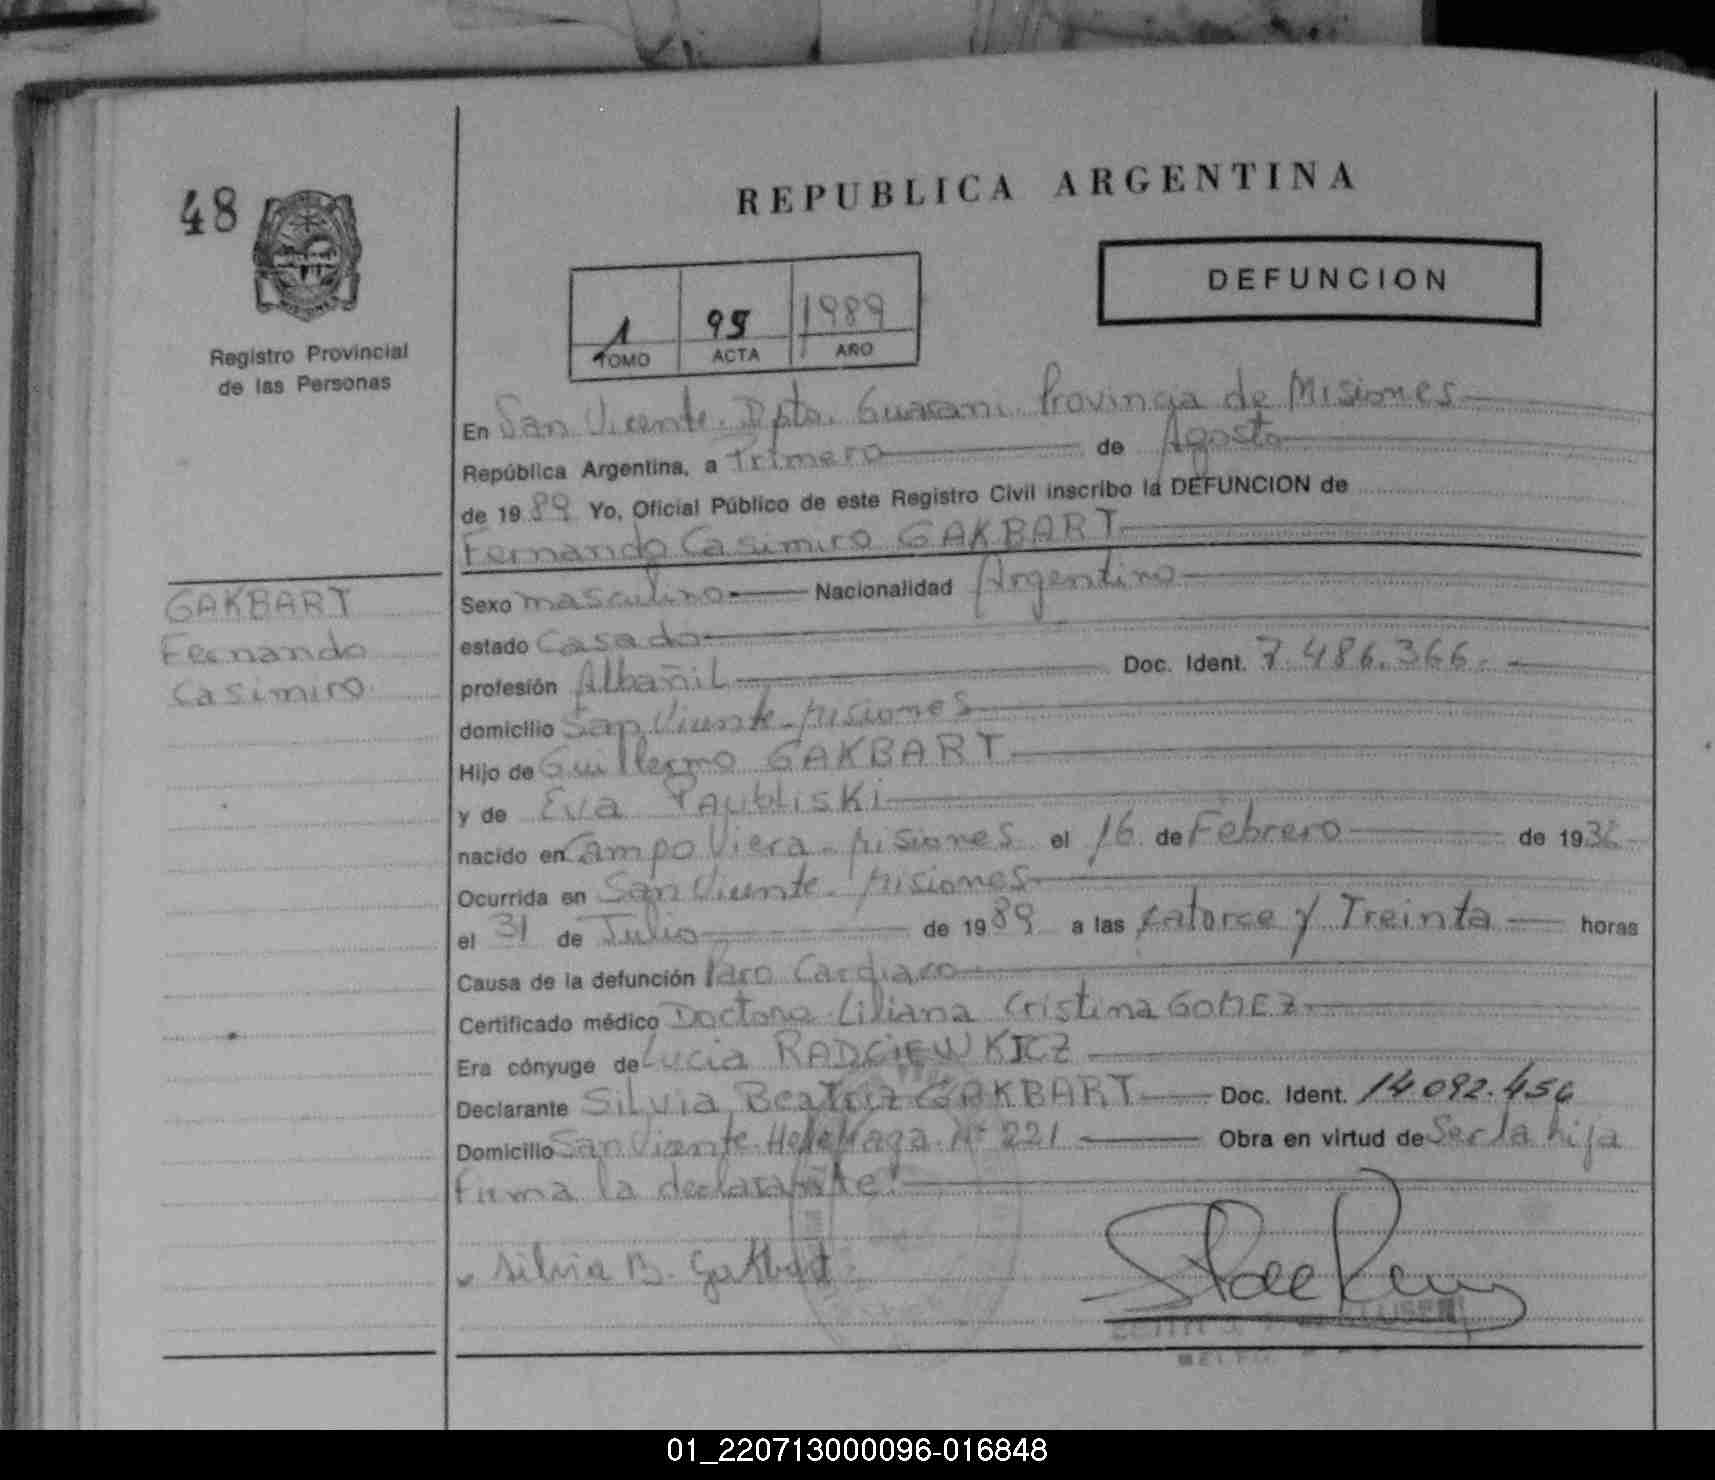 48
REPUBLICA ARGENTINA
DEFUNCION
1 99 1989
TOMO ACTA AÑO
Registro Provincial
de las Personas
En San Vicente. Dpto. Guarani. Provincia de Misiones
República Argentina, a Primero de Agosto
de 19 89 Yo, Oficial Público de este Registro Civil inscribo la DEFUNCION de
Fernando Casimiro GAKBART
GAKBART
Fernando
Casimiro.
Sexo masculino Nacionalidad Argentino
estado Casado
profesión Albañil Doc. Ident. 7.486.366.
domicilio San Vicente - Misiones
Hijo de Guillermo GAKBART
y de Eva PAubliski
nacido en Campo Viera - Misiones el 16 de Febrero de 19
Ocurrida en San Vicente - Misiones
el 31 de Julio de 1989 a las catorce y Treinta horas
Causa de la defunción Paro Cardiaco
Certificado médico Doctora Liliana Cristina GOMEZ
Era cónyuge de Lucia RADCIEWKICZ
Declarante Silvia Beatriz GAKBART Doc. Ident. 14.092.456
Domicilio San Vicente. Nº 221 Obra en virtud de Ser la hija
Firma la declarante.
Silvia B. Gakbart
01_220713000096-016848